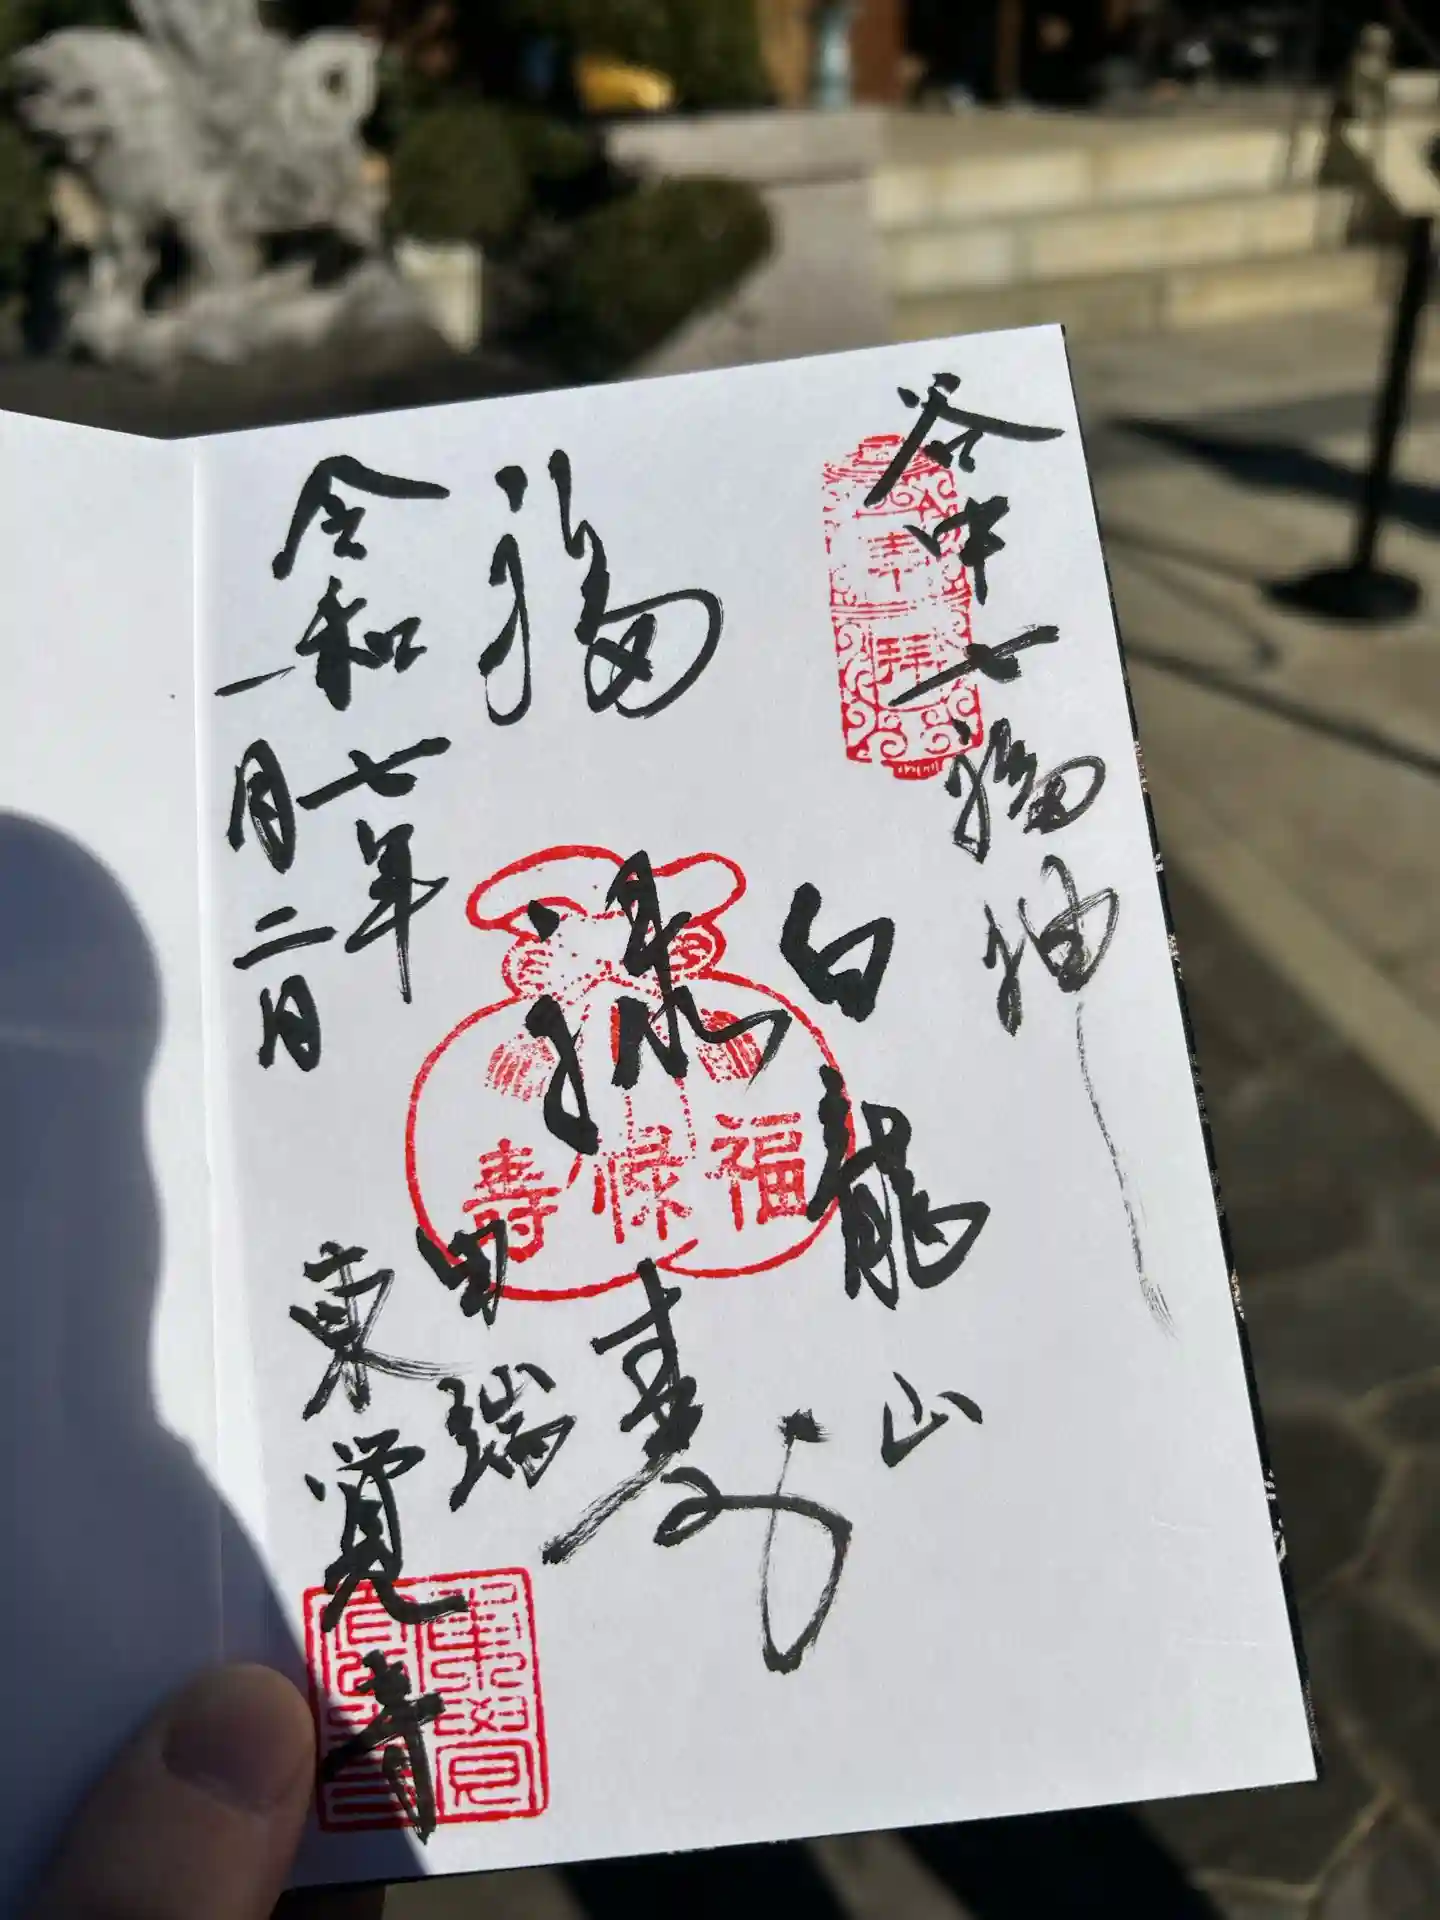 谷中七福神
奉拝
白龍山
福禄寿
福禄寿
田端
令和七年
一月二日
東覚寺